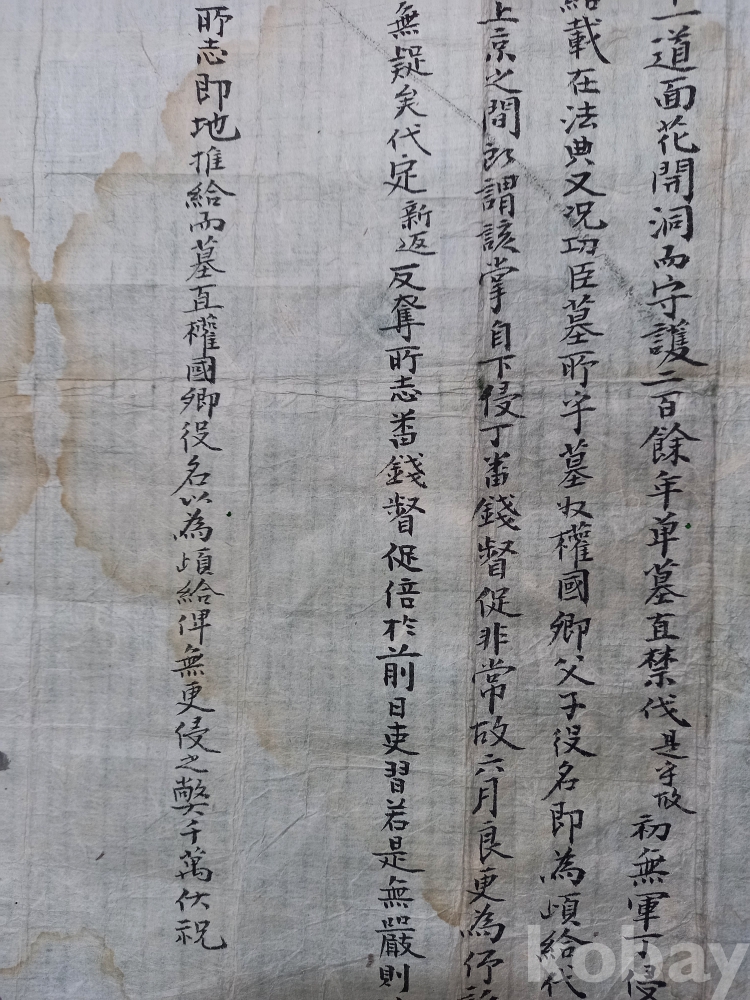 一道面花開洞而守護二百餘年單墓直禁伐是乎故初無軍丁侵
給載在法典又況功臣墓所乎墓奴權國卿父子役名即為頉給代
上京之間所謂該掌自下侵丁番錢督促非常故六月良更為伻訴
無疑矣代定新返反奪所志番錢督促倍於前日吏習若是無嚴則
所志即地推給而墓直權國卿役名以為頉給俾無更侵之弊千萬伏祝
kobay